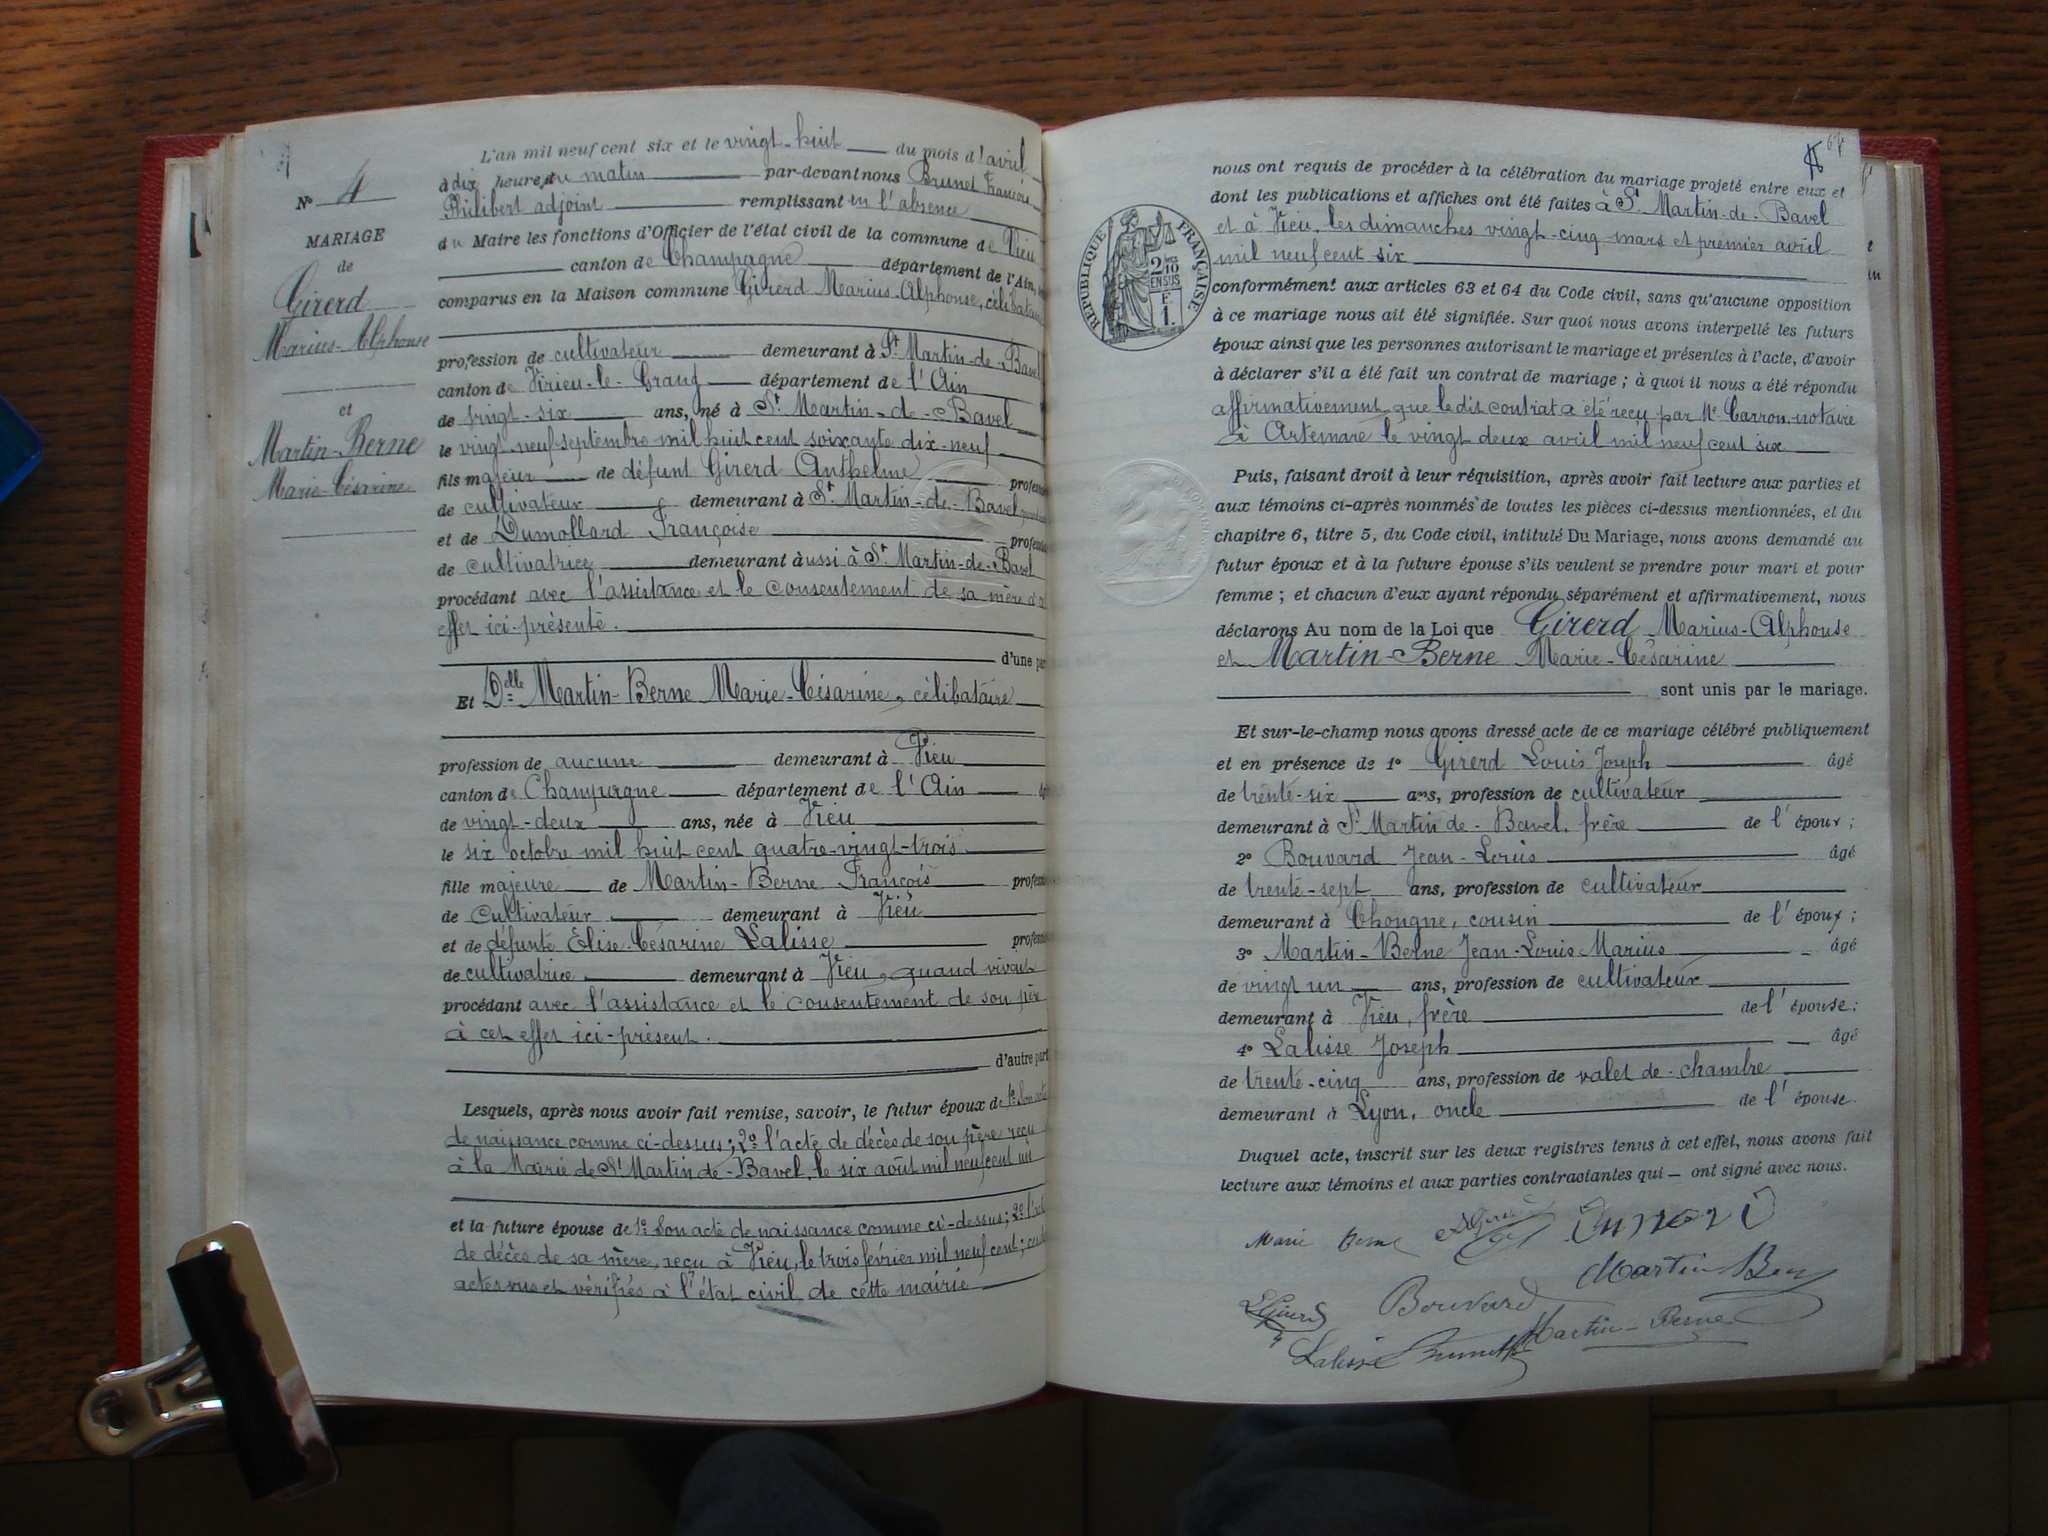 N° 4
MARIAGE
de
Girerd
Marius-Alphonse
et
Martin-Berne
Marie-Césarine
L'an mil neuf cent six et le vingt-huit du mois d'avril
à dix heures du matin par-devant nous Brunet François
Philibert adjoint remplissant en l'absence
du Maire les fonctions d'Officier de l'état civil de la commune de Vieu
canton de Champagne département de l'Ain,
comparus en la Maison commune Girerd Marius-Alphonse, célibataire
profession de cultivateur demeurant à St Martin-de-Bavel
canton de Virieu-le-Grand département de l'Ain
de vingt-six ans, né à St Martin-de-Bavel
le vingt neuf septembre mil huit cent soixante dix-neuf
fils majeur de défunt Girerd Anthelme profession
de cultivateur demeurant à St Martin-de-Bavel
et de Dumollard Françoise profession
de cultivatrice demeurant aussi à St Martin-de-Bavel
procédant avec l'assistance et le consentement de sa mère à
effet ici-présente.
d'une part
Et Delle Martin-Berne Marie-Césarine, célibataire
profession de aucune demeurant à Vieu
canton de Champagne département de l'Ain
de vingt-deux ans, née à Vieu
le six octobre mil huit cent quatre-vingt-trois
fille majeure de Martin-Berne François profession
de cultivateur demeurant à Vieu
et de défunte Elise-Césarine Lalisse profession
de cultivatrice demeurant à Vieu, quand vivait
procédant avec l'assistance et le consentement de son père
à cet effet ici-présent.
d'autre part
Lesquels, après nous avoir fait remise, savoir, le futur époux de 1° Son acte
de naissance comme ci-dessus; 2° l'acte de décès de son père reçu
à la Mairie de St Martin-de-Bavel, le six août mil neuf cent un
et la future épouse de 1° Son acte de naissance comme ci-dessus; 2° l'acte
de décès de sa mère, reçu à Vieu, le trois février mil neuf cent;
actes vus et vérifiés à l'état civil de cette mairie
nous ont requis de procéder à la célébration du mariage projeté entre eux et
dont les publications et affiches ont été faites à St Martin-de-Bavel
et à Vieu, les dimanches vingt-cinq mars et premier avril
mil neuf cent six
RÉPUBLIQUE FRANÇAISE
2/10 EN SUS
F. 1.
conformément aux articles 63 et 64 du Code civil, sans qu'aucune opposition
à ce mariage nous ait été signifiée. Sur quoi nous avons interpellé les futurs
époux ainsi que les personnes autorisant le mariage et présentes à l'acte, d'avoir
à déclarer s'il a été fait un contrat de mariage; à quoi il nous a été répondu
affirmativement, que le dit contrat a été reçu par Me Carron, notaire
à Artemare le vingt deux avril mil neuf cent six
Puis, faisant droit à leur réquisition, après avoir fait lecture aux parties et
aux témoins ci-après nommés de toutes les pièces ci-dessus mentionnées, et du
chapitre 6, titre 5, du Code civil, intitulé Du Mariage, nous avons demandé au
futur époux et à la future épouse s'ils veulent se prendre pour mari et pour
femme; et chacun d'eux ayant répondu séparément et affirmativement, nous
déclarons Au nom de la Loi que Girerd Marius-Alphonse
et Martin-Berne Marie-Césarine
sont unis par le mariage.
Et sur-le-champ nous avons dressé acte de ce mariage célébré publiquement
et en présence de 1° Girerd Louis Joseph âgé
de trente-six ans, profession de cultivateur
demeurant à St Martin-de-Bavel, frère de l'époux;
2° Bouvard Jean-Louis âgé
de trente-sept ans, profession de cultivateur
demeurant à Chongne, cousin de l'époux;
3° Martin-Berne Jean-Louis-Marius âgé
de vingt un ans, profession de cultivateur
demeurant à Vieu, frère de l'épouse;
4° Lalisse Joseph âgé
de trente-cinq ans, profession de valet de chambre
demeurant à Lyon, oncle de l'épouse.
Duquel acte, inscrit sur les deux registres tenus à cet effet, nous avons fait
lecture aux témoins et aux parties contractantes qui ont signé avec nous.
Marie Berne
Martin Berne
LGirerd Bouvard Martin-Berne
Lalisse Brunet